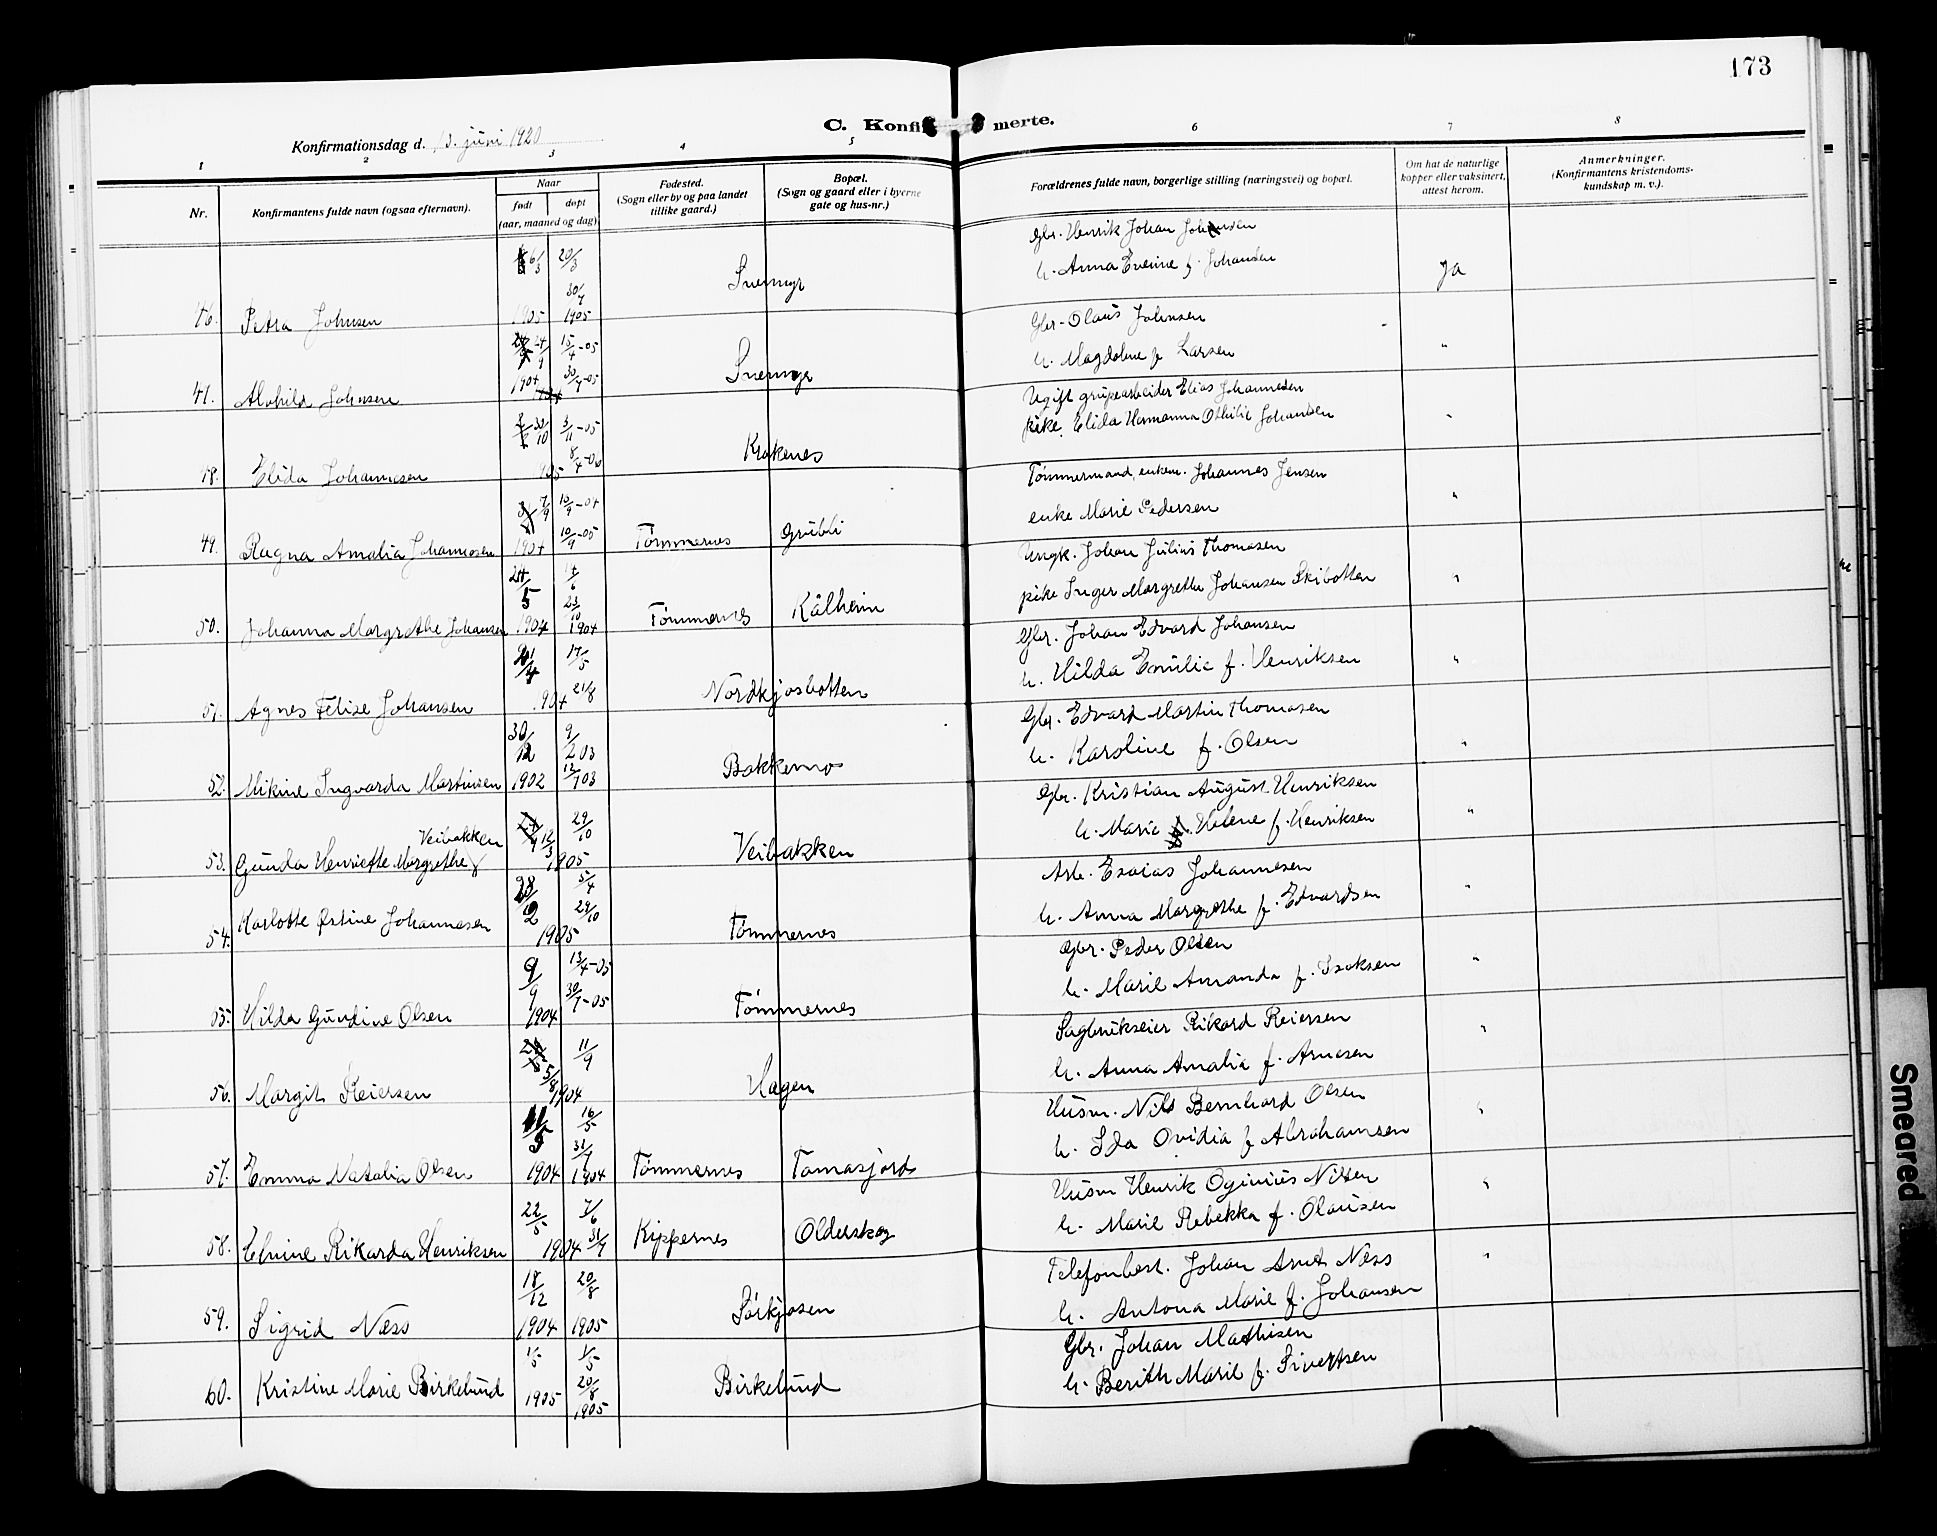 173
C. Konfi merte.
Konfirmationsdag d. 13. juni 1920
1 2 3 4 5 6 7 8
Nr.
Konfirmantens fulde navn (ogsaa efternavn).
Naar
født døpt
(aar, maaned og dag)
Fødested.
(Sogn eller by og paa landet
tillike gaard.)
Bopæl.
(Sogn og gaard eller i byerne
gate og hus-nr.)
Forældrenes fulde navn, borgerlige stilling (næringsvei) og bopæl.
Om hat de naturlige
kopper eller vaksinert,
attest herom.
Anmerkninger.
(Konfirmantens kristendoms-
kundskap m. v.).
46. Petra Johnsen 6/3 1905 20/3 30/7 1905
Gbr. Henrik Johan Johansen
h. Anna f. Johansen
ja
Alvhild Johnsen 24/9 1904 15/4-05 30/7-05
Gbr. Olaus Johnsen
h. Magdalene f. Larsen
"
48. Elida Johannesen 30/10 1905 3/11-05 8/4-06 Krakenes
Ugift grubearbeider Elias Johannesen
pike Elida Hermanna Othilie Johansen
"
49. Ragna Amalia Johannesen 7/9 1904 10/9-04 10/9-05 Tømmernes Grubli
Tømmermand, enkem. Johannes Jensen
enke Marie Pedersen
"
50. Johanna Margrethe Johansen 24/5 1904 14/6 23/10 1904 Tømmernes Kålheim
Ungk. Johan Julius Thomasen
pike Inger Margrethe Johansen Skibotten
"
51. Agnes Felize Johansen 21/4 1904 17/5 21/8 Nordkjosbotten
Gbr. Johan Edvard Johansen
h. Hilda Emilie f. Henriksen
"
52. Mikine Ingvarda Martinsen 30/12 1902 9/2 03 12/7 03 Bakkemo
Gbr. Edvard Martin Thomasen
h. Karoline f. Olsen
"
53. Gunda Henriette Margrethe Veibakken 12/3 1905 29/10 Veibakken
Gbr. Kristian August Henriksen
h. Marie Helene f. Henriksen
"
54. Karlotte Østine Johannesen 28/2 1905 5/4 29/10 Tømmernes
Arb. Esaias Johannesen
h. Anna Margrethe f. Edvardsen
"
55. Hilda Gundine Olsen 9/9 1904 13/4-05 30/7-05 Tømmernes
Gbr. Peder Olsen
h. Marie Amanda f. Isaksen
"
56. Margit Reiersen 5/8 1904 11/9 Hagen
Sagbrukseier Rikard Reiersen
h. Anna Amalia f. Arnesen
"
57. Emma Natalia Olsen 11/5 1904 16/5 31/7 1904 Tømmernes Tamasjord
Husm. Nils Bernhard Olsen
h. Ida Ovidia f. Abrahamsen
"
58. Elvine Rikarda Henriksen 22/5 1904 7/6 31/7 Kippernes Olderskog
Husm Henrik Oginius Nilsen
h. Marie Rebekka f. Olausen
"
59. Sigrid Næss 18/12 1904 20/8 1905 Sørkjosen
Telefonbest. Johan Arnt Næss
h. Antona Marie f. Johansen
"
60. Kristine Marie Birkelund 1/5 1905 1/5 20/8 1905 Birkelund
Gbr. Johan Mathisen
h. Berith Marie f. Sivertsen
Smeared